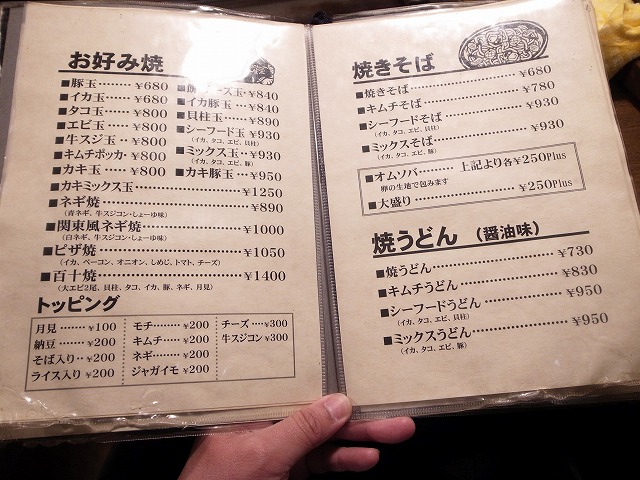 お好み焼
■豚玉‥‥‥¥680
■イカ玉‥‥‥¥680
■タコ玉‥‥‥¥800
■エビ玉‥‥‥¥800
■牛スジ玉‥‥¥800
■キムチポッカ‥¥800
■カキ玉‥‥‥¥800
ーズ玉‥¥840
■イカ豚玉‥¥840
■貝柱玉‥‥¥890
■シーフード玉 ¥930
(イカ、タコ、エビ、貝柱)
■ミックス玉‥¥930
(イカ、タコ、エビ、豚)
■カキ豚玉‥¥950
■カキミックス玉‥‥‥‥‥‥¥1250
■ネギ焼‥‥‥‥‥‥¥890
(青ネギ、牛スジコン・しょーゆ味)
■関東風ネギ焼‥‥‥‥‥‥¥1000
(白ネギ、牛スジコン・しょーゆ味)
■ピザ焼‥‥‥‥‥‥¥1050
(イカ、ベーコン、オニオン、しめじ、トマト、チーズ)
■百十焼‥‥‥‥‥‥¥1400
(大エビ2尾、貝柱、タコ、イカ、豚、ネギ、月見)
トッピング
月見‥‥‥¥100
納豆‥‥‥¥200
そば入り‥¥200
ライス入り ¥200
モチ‥‥‥¥200
キムチ‥‥¥200
ネギ‥‥‥¥200
ジャガイモ‥¥200
チーズ‥‥¥300
牛スジコン ¥300
焼きそば
■焼きそば‥‥‥‥‥‥¥680
■キムチそば‥‥‥‥‥‥¥780
■シーフードそば‥‥‥‥‥‥¥930
(イカ、タコ、エビ、貝柱)
■ミックスそば‥‥‥‥‥‥¥930
(イカ、タコ、エビ、豚)
■オムソバ‥‥‥‥ 上記より各¥250Plus
卵の生地で包みます
■大盛り‥‥‥‥‥‥¥250Plus
焼うどん (醤油味)
■焼うどん‥‥‥‥‥‥¥730
■キムチうどん‥‥‥‥‥‥¥830
■シーフードうどん‥‥‥‥‥‥¥950
(イカ、タコ、エビ、貝柱)
■ミックスうどん‥‥‥‥‥‥¥950
(イカ、タコ、エビ、豚)